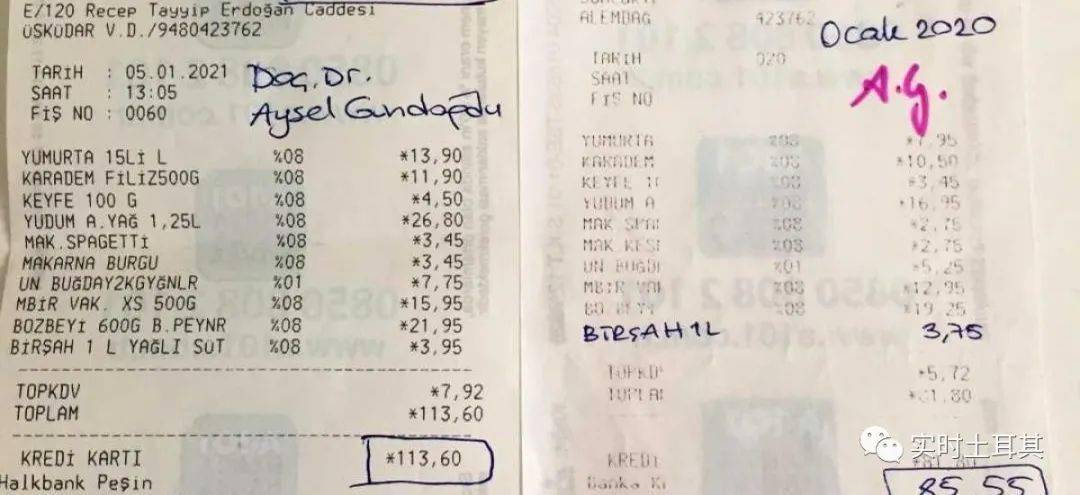 E/120 Recep Tayyip Erdoğan Caddesi
ÜSKÜDAR V.D./9480423762
TARİH : 05.01.2021
SAAT : 13:05
FİŞ NO : 0060
Doç. Dr.
Aysel Gündoğdu
YUMURTA 15Lİ L %08 *13,90
KARADEM FİLİZ500G %08 *11,90
KEYFE 100 G %08 *4,50
YUDUM A.YAĞ 1,25L %08 *26,80
MAK.SPAGETTİ %08 *3,45
MAKARNA BURGU %08 *3,45
UN BUĞDAY2KGYĞNLR %01 *7,75
MBİR VAK. XS 500G %08 *15,95
BOZBEYİ 600G B.PEYNR %08 *21,95
BİRŞAH 1 L YAĞLI SÜT %08 *3,95
TOPKDV *7,92
TOPLAM *113,60
KREDİ KARTI *113,60
Halkbank Peşin
ALEMDAĞ 423762
Ocak 2020
A.G.
TARİH 020
SAAT
FİŞ NO
YUMURTA %08 *7,95
KARADEM %08 *10,50
KEYFE 1 %08 *3,45
YUDUM A %08 *16,95
MAK SPA %08 *2,75
MAK KES %08 *2,75
UN BUĞD %01 *5,25
MBİR VA %08 *12,95
%08 *19,25
BİRŞAH 1L 3,75
TOPKD *5,72
TOPLA 1,80
KREDİ
Banka K
85,55
实时土耳其